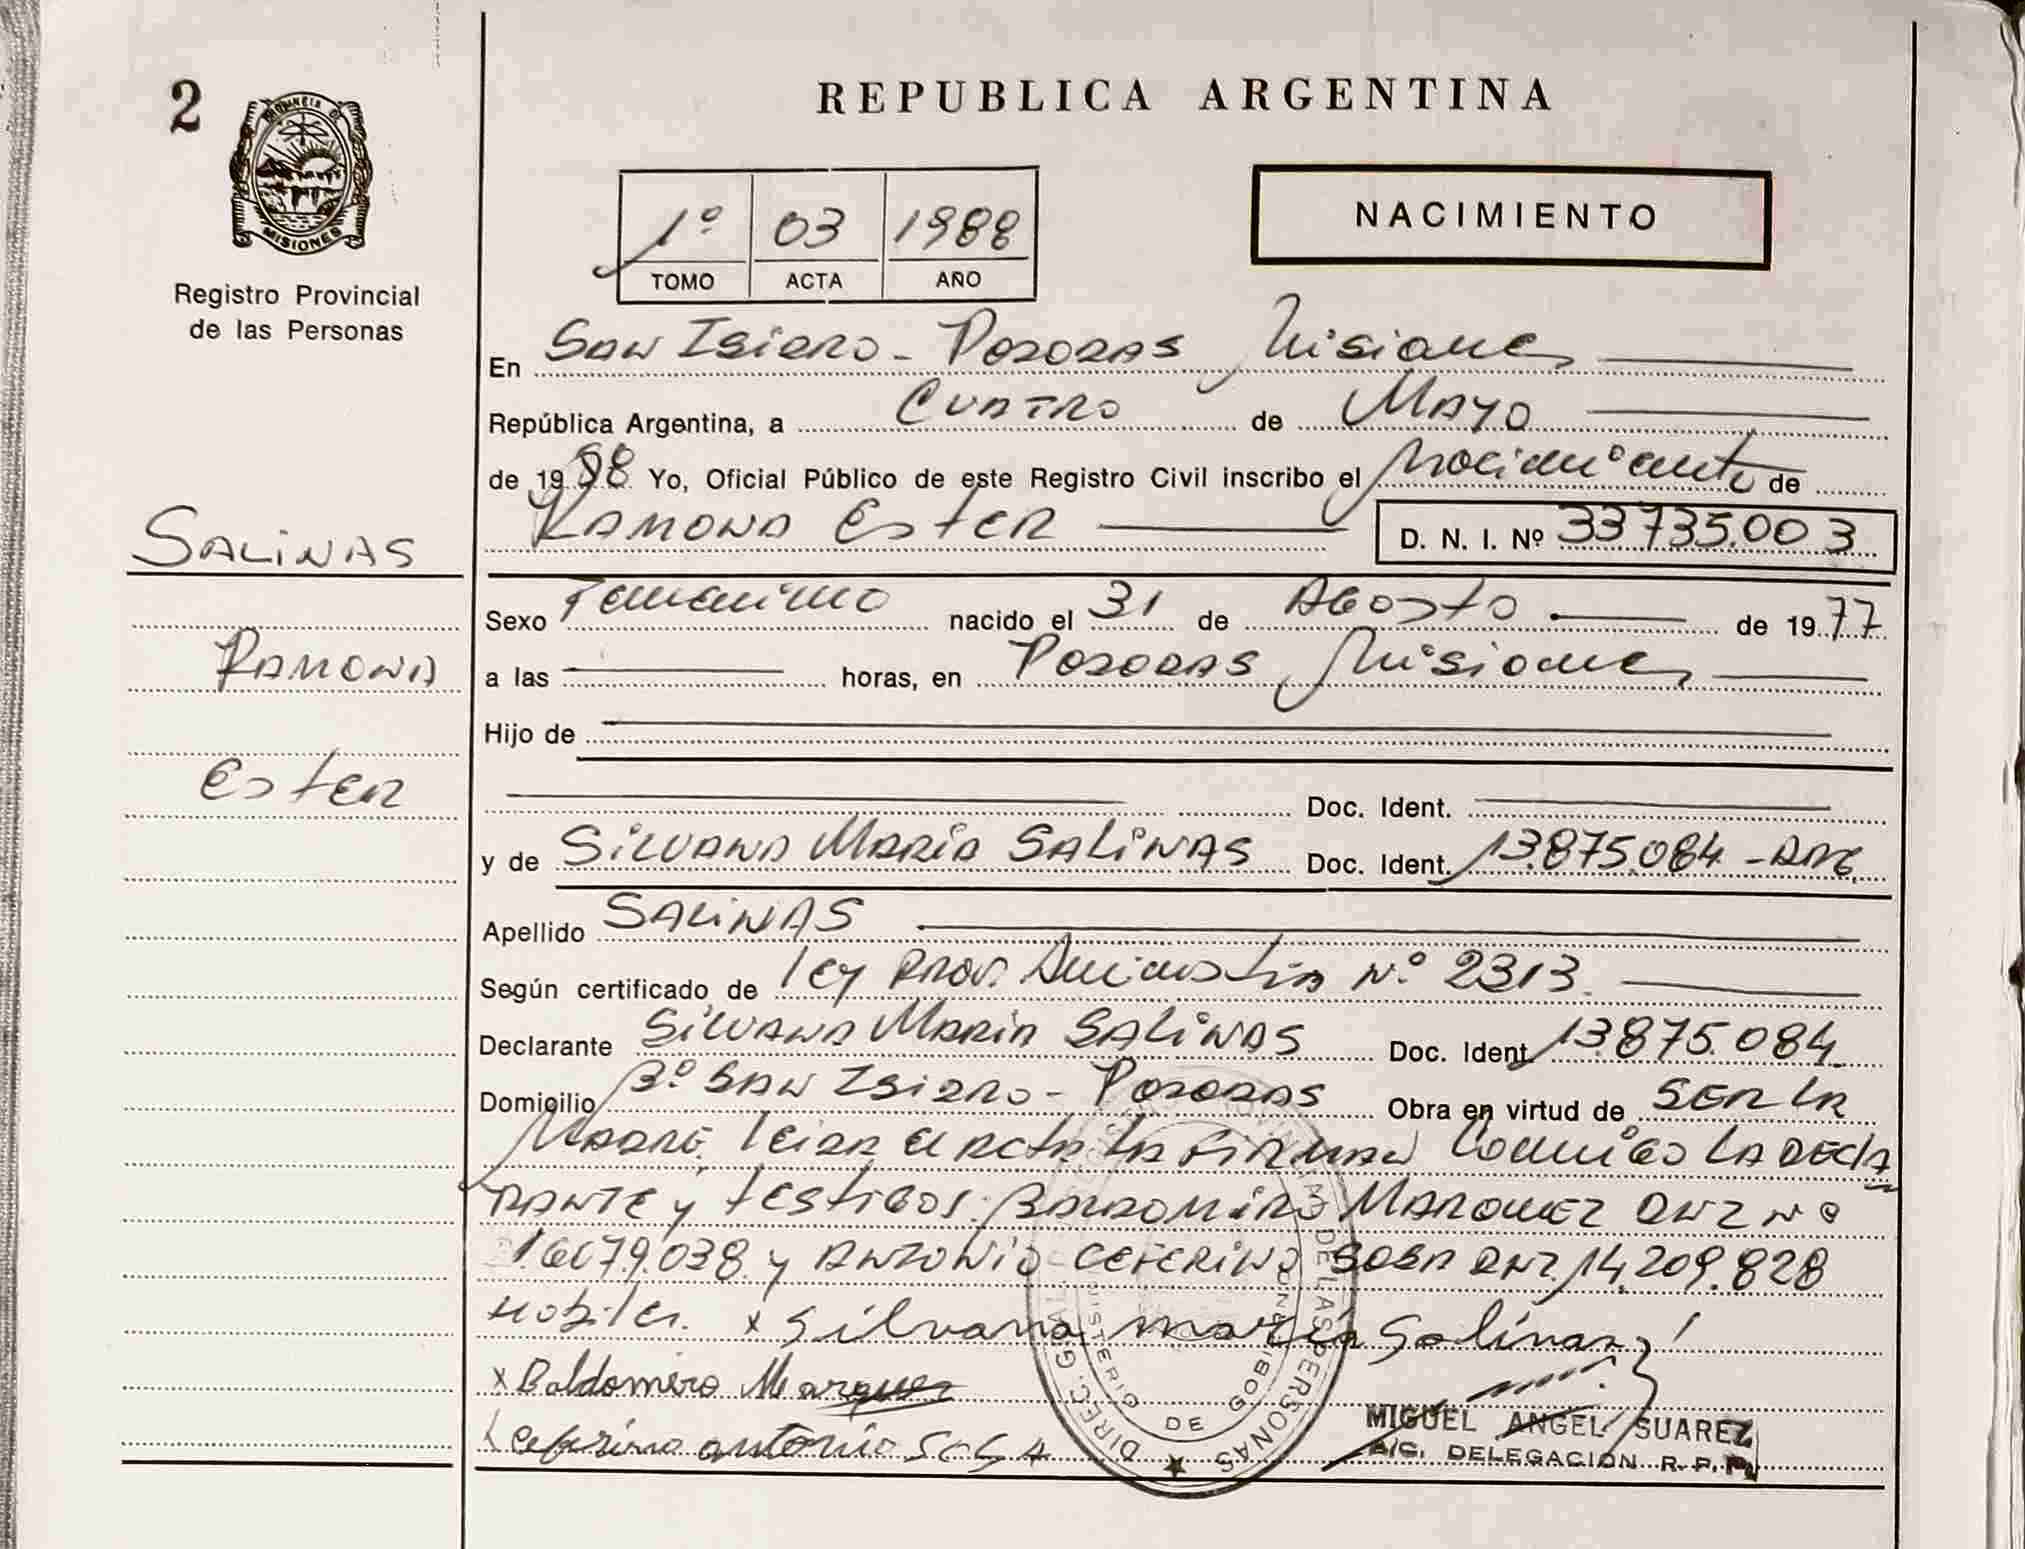 2
PROVINCIA DE
MISIONES
Registro Provincial
de las Personas
REPUBLICA ARGENTINA
1º 03 1988
TOMO ACTA AÑO
NACIMIENTO
En San Isidro - Posadas Misiones
República Argentina, a Cuatro de Mayo
de 1988 Yo, Oficial Público de este Registro Civil inscribo el Nacimiento de
Ramona Ester D. N. I. Nº 33735.003
SALINAS
Ramona
Ester
Sexo Femenino nacido el 31 de Agosto de 1977
a las horas, en Posadas Misiones
Hijo de
Doc. Ident.
y de Silvana Maria Salinas Doc. Ident. 13.875.084 - ARG.
Apellido SALINAS
Según certificado de ley Prov. Amnistia Nº 2313.
Declarante Silvana Maria Salinas Doc. Ident. 13.875.084
Domicilio Bº San Isidro - Posadas Obra en virtud de SER LA
Madre. leida el acta la firman conmigo la decla
rante y testigos: Baldomero Marquez DNI Nº
16.079.038 y Antonio Ceferino Sosa DNI. 14.209.828
Habiles. x Silvana maria Salinas
x Baldomero Marquez
x Ceferino antonio SOSA
DIREC. GRAL. PROVINCIAL DE LAS PERSONAS
MINISTERIO DE GOBIERNO
MIGUEL ANGEL SUAREZ
A/C. DELEGACION R. P. P.